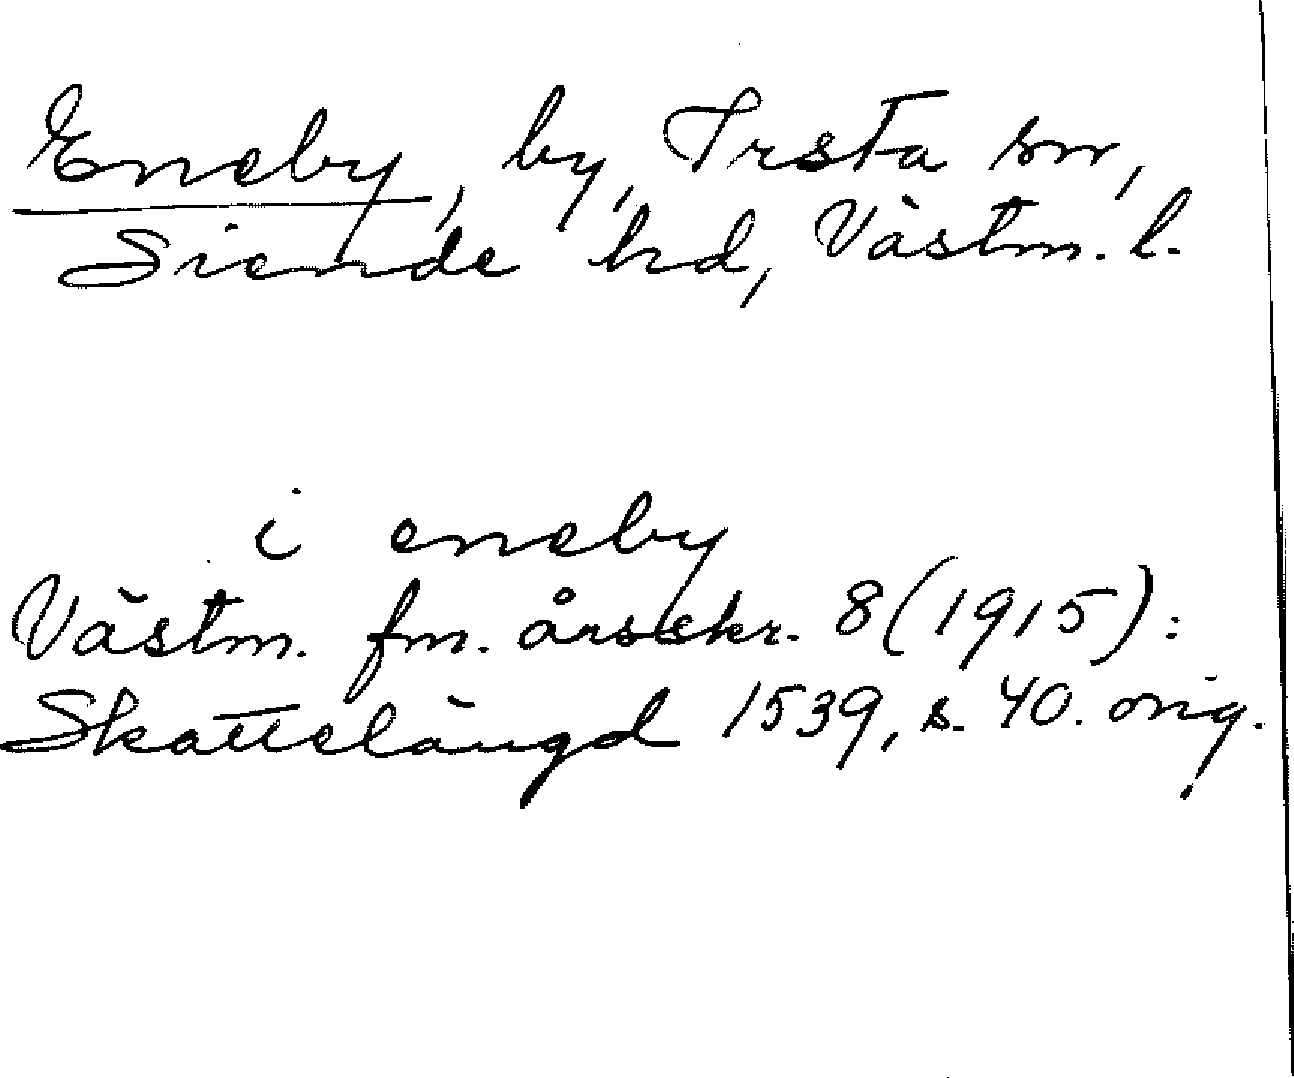 Eneby, by, Irsta sn,
Siende hd, Västm. l.
i eneby
Västm. fm. årsskr. 8 (1915):
Skattelängd 1539, s. 40. orig.